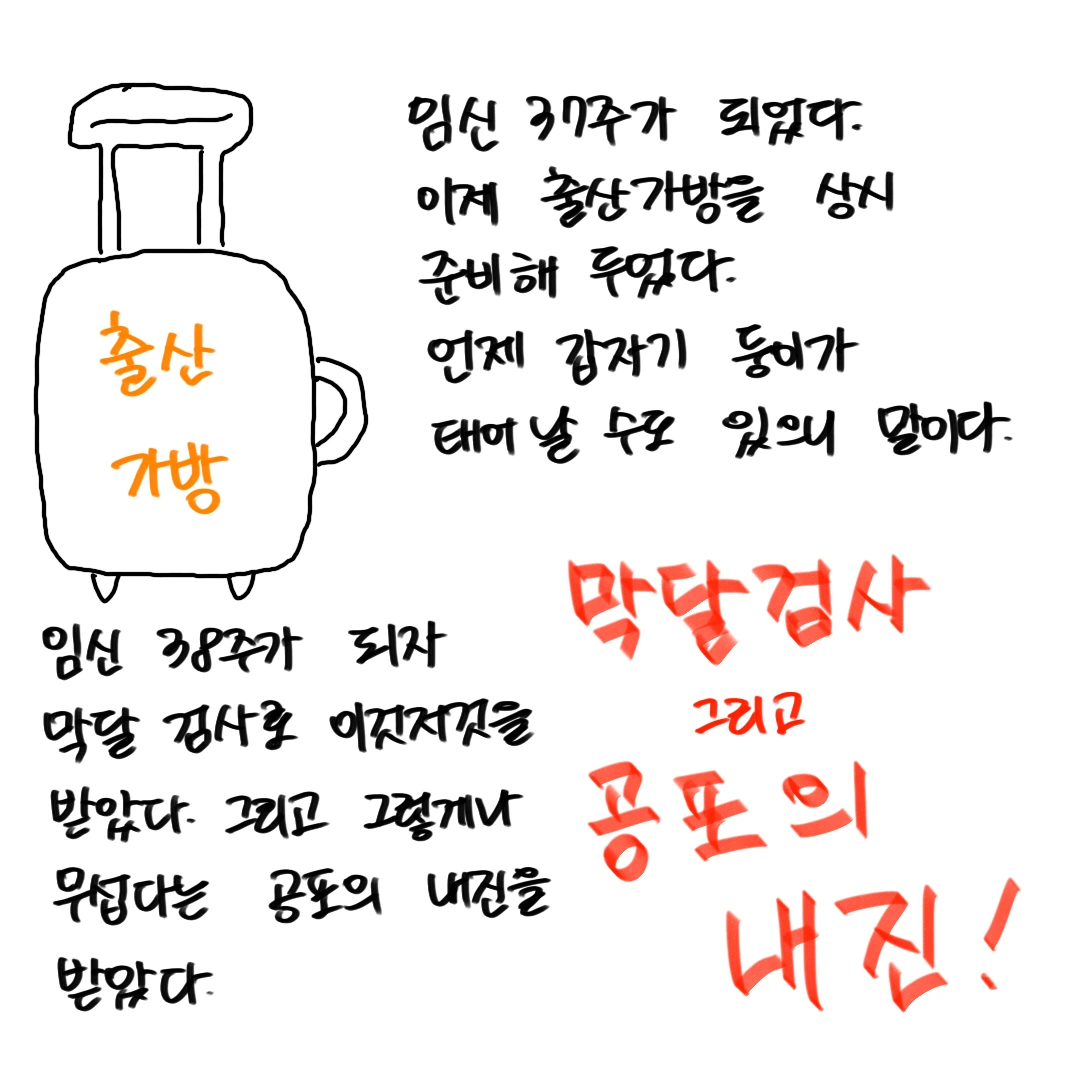 임신 37주가 되었다.
이제 출산가방을 상시
준비해 두었다.
언제 갑자기 둥이가
태어날 수도 있으니 말이다.
출산
가방
임신 38주가 되자
막달 검사로 이것저것을
받았다. 그리고 그렇게나
무섭다는 공포의 내진을
받았다.
막달검사
그리고
공포의
내진!